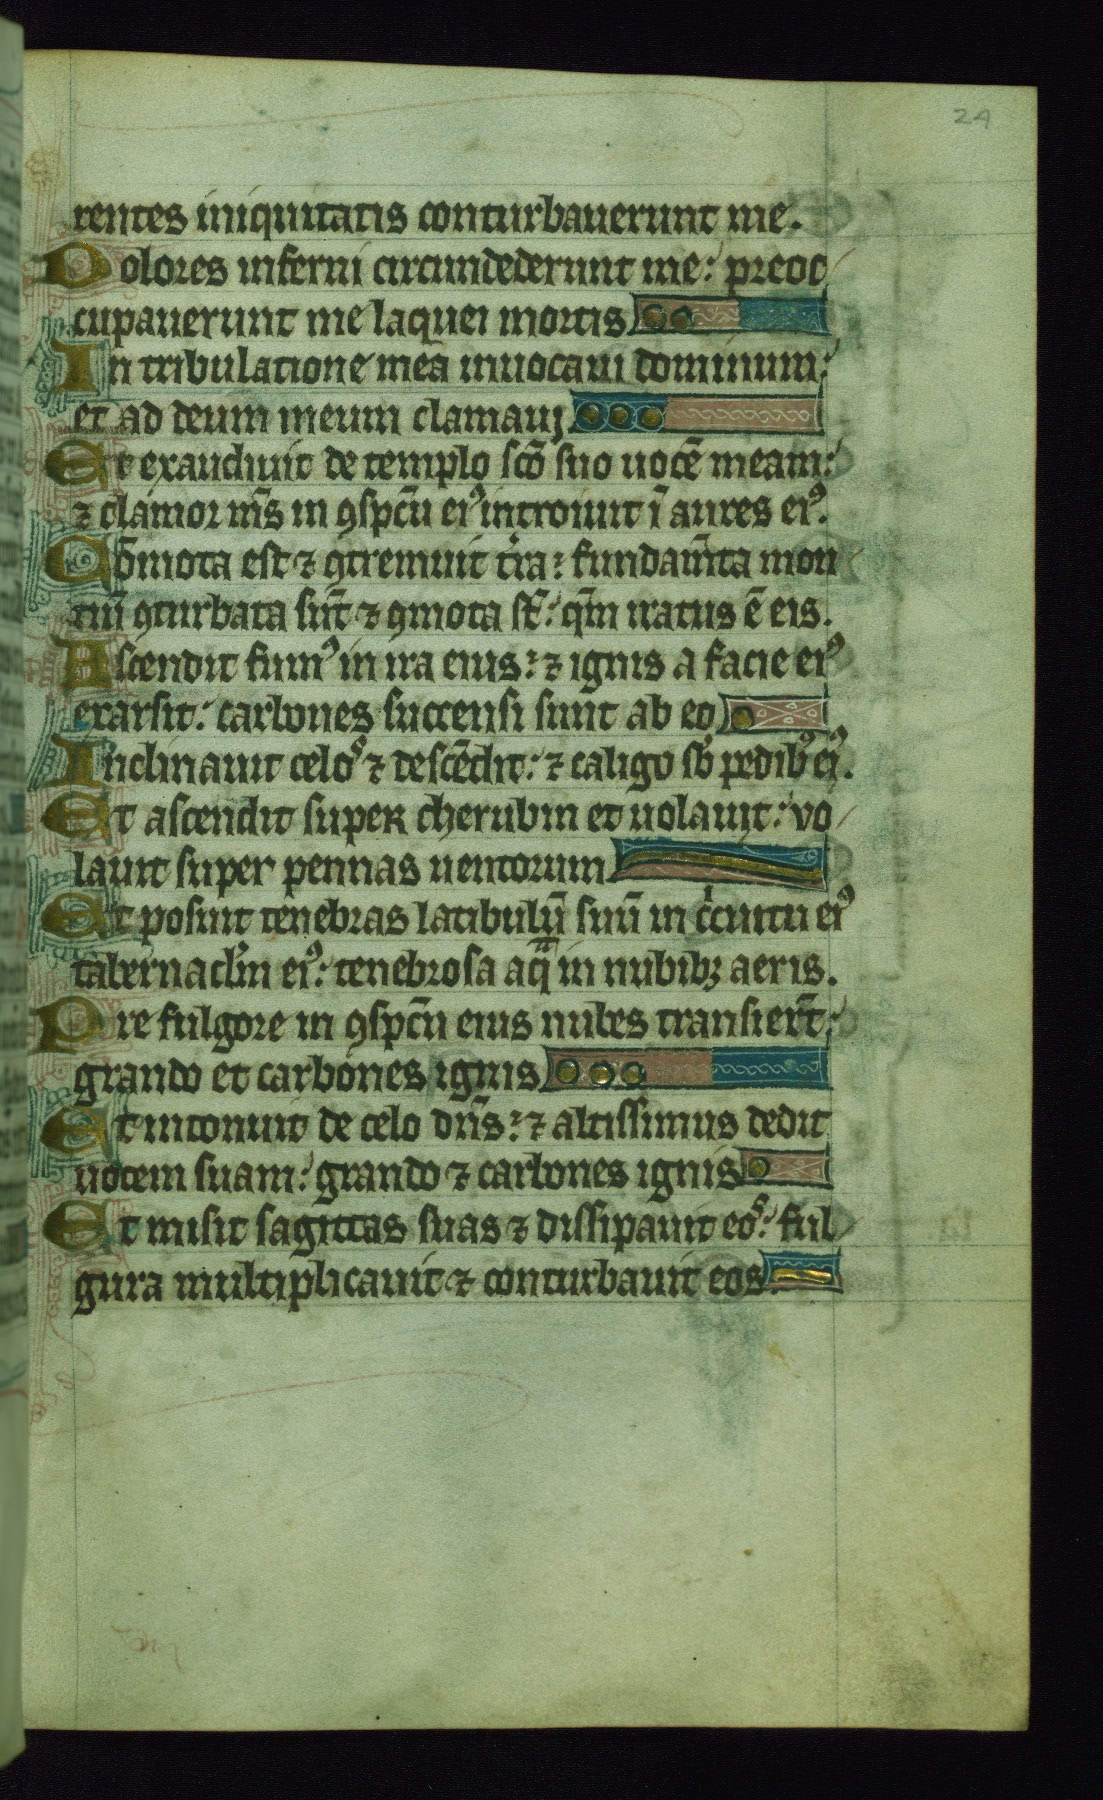 24
rentes iniquitatis conturbauerunt me.
Dolores inferni circundederunt me: preoc
cupauerunt me laquei mortis
In tribulatione mea inuocaui dominum:
et ad deum meum clamauj
Et exaudiuit de templo sc̄o suo uocē meam:
⁊ clamor m̄s in ꝯspc̄u eiꝰ introiuit ī aures eiꝰ.
Cōmota est ⁊ ꝯtremuit t̄ra: fundam̄ta mon
tiū ꝯturbata sūt ⁊ ꝯmota st̄: qm̄ iratus ē eis.
Ascendit fumꝰ in ira eius: ⁊ ignis a facie eiꝰ
exarsit: carbones succensi sunt ab eo
Inclinauit celoꝰ ⁊ descēdit: ⁊ caligo sb̄ pedibꝰ eiꝰ.
Et ascendit super cherubin et uolauit: vo
lauit super pennas uentorum
Et posuit tenebras latibulū suū in cͥcuitu eiꝰ
tabernacl̄m eiꝰ: tenebrosa aq̄ in nubibꝫ aeris.
Pre fulgore in ꝯspc̄u eius nubes transier̄t:
grando et carbones ignis
Et intonuit de celo dn̄s: ⁊ altissimus dedit
uocem suam: grando ⁊ carbones ignis
Et misit sagittas suas ⁊ dissipauit eoˢ: ful
gura multiplicauit ⁊ conturbauit eos.